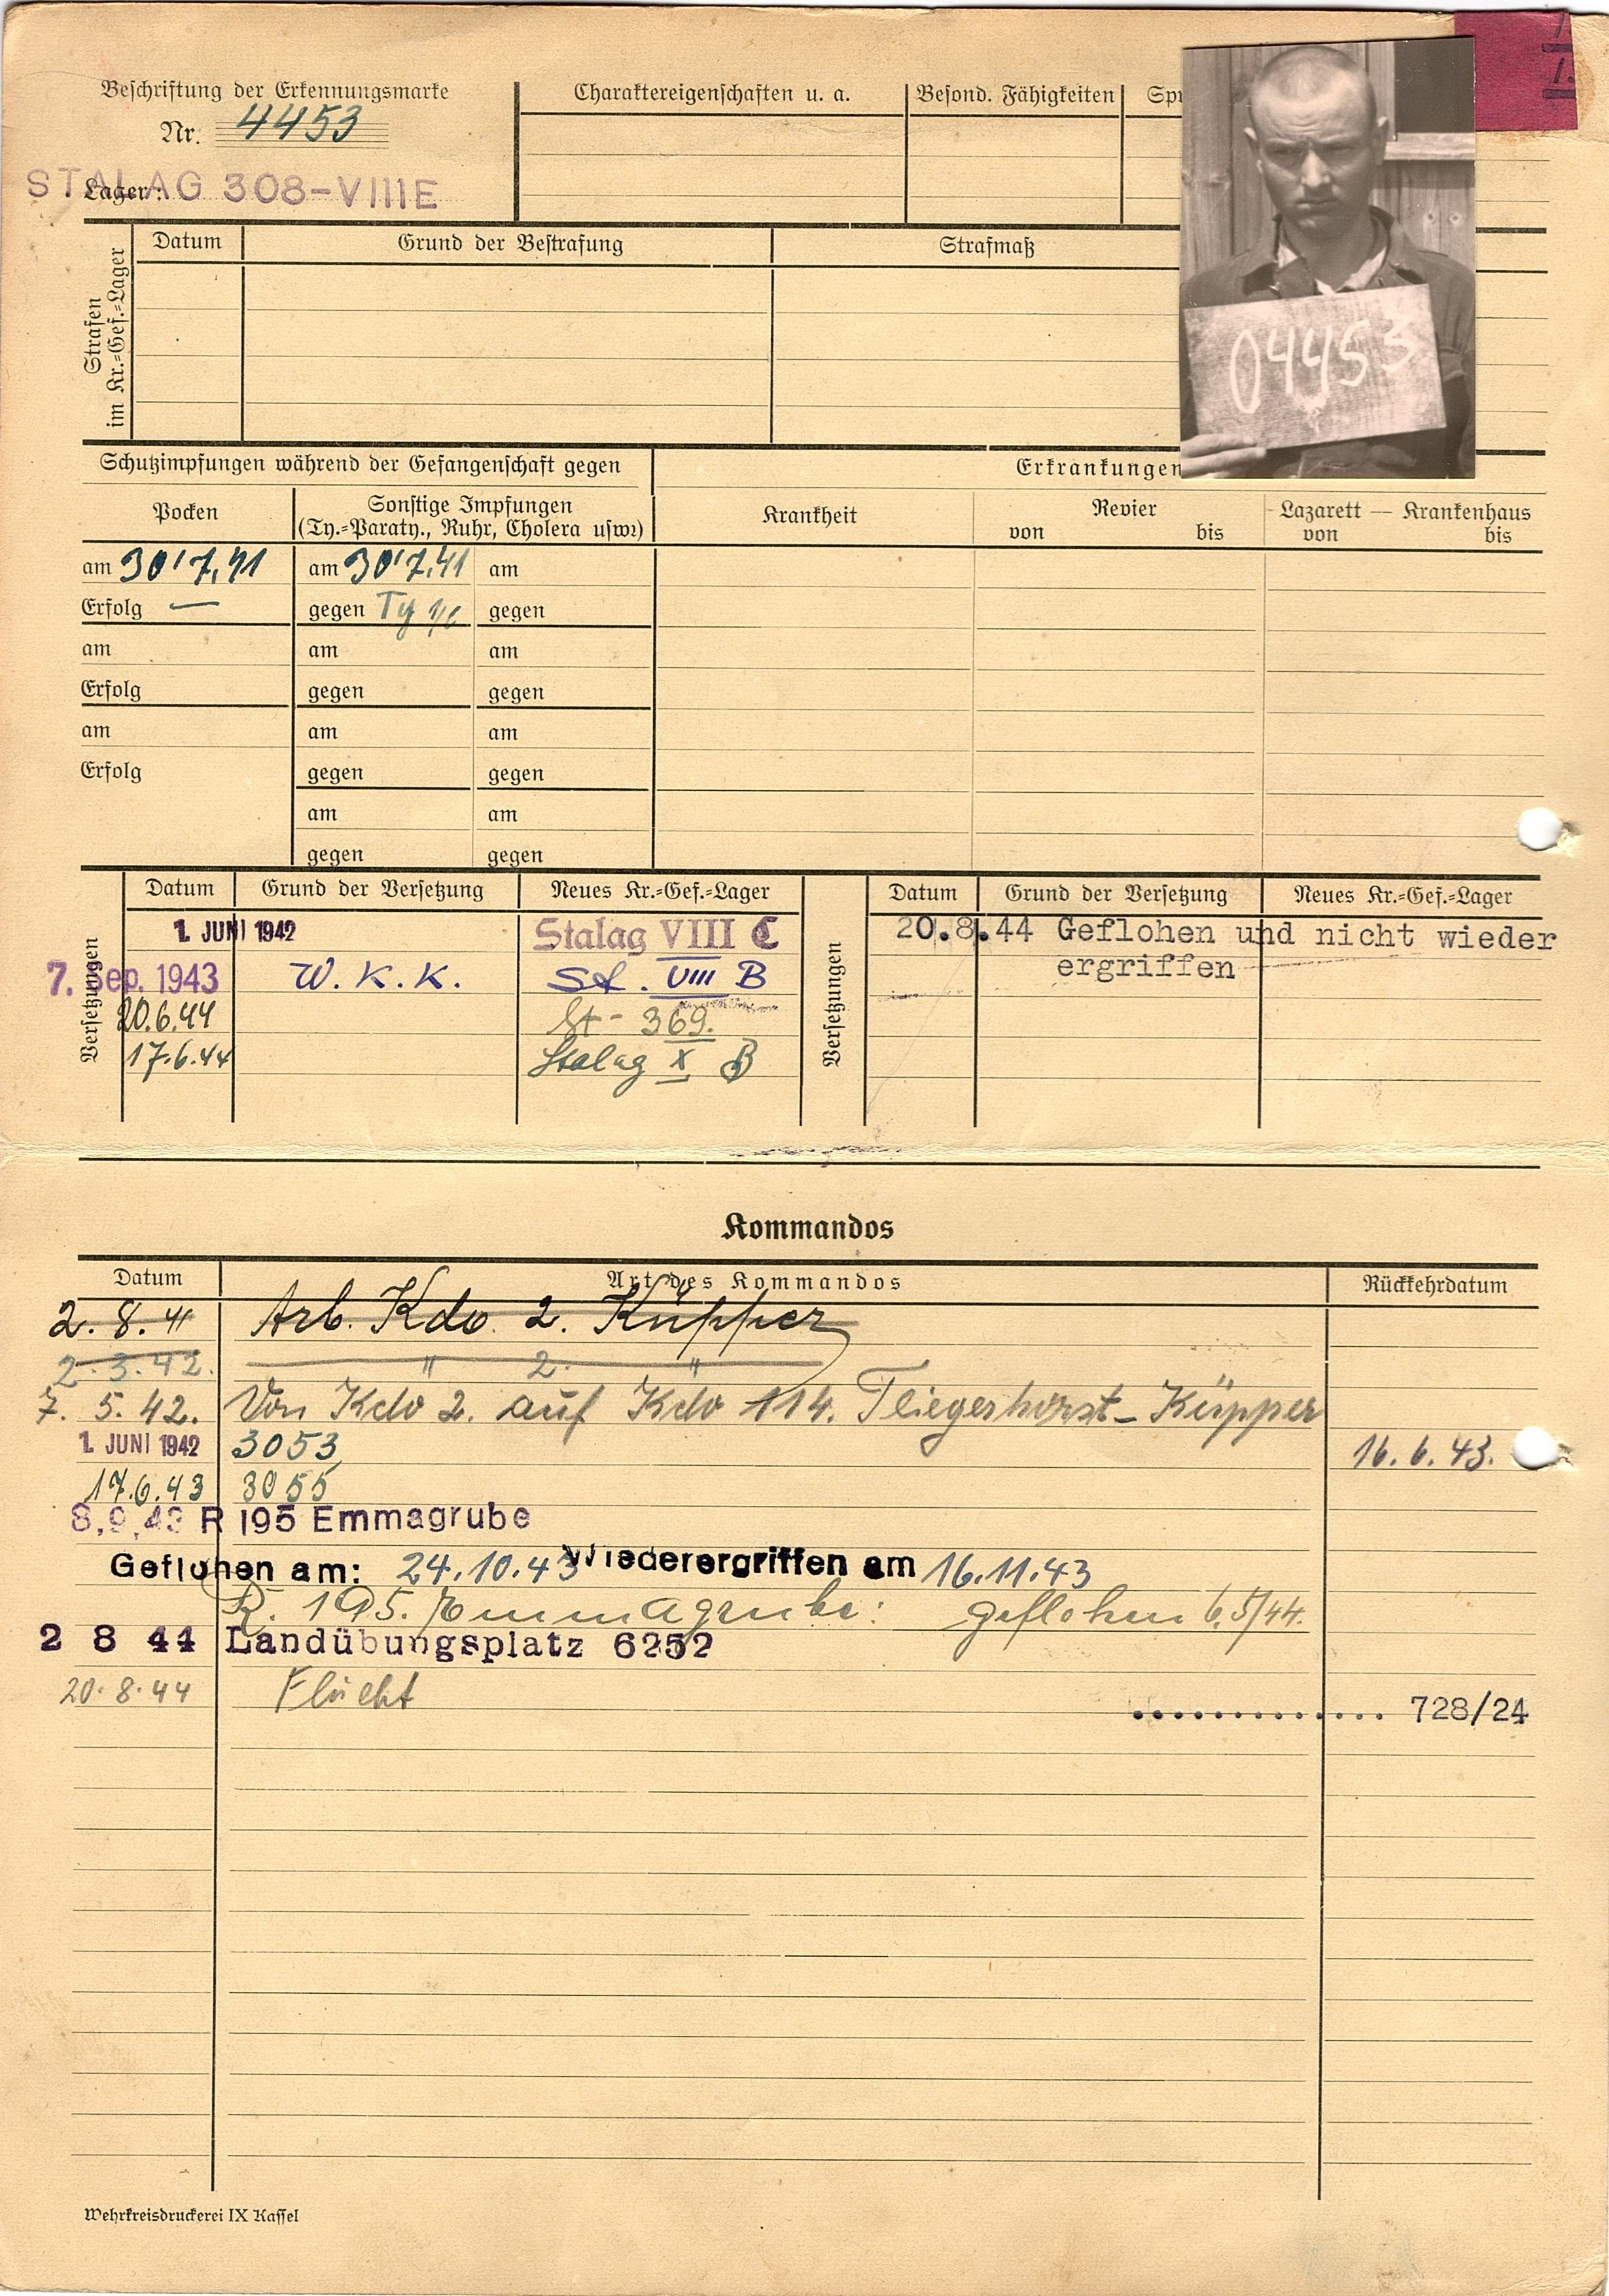 Beschriftung der Erkennungsmarke
Nr. 4453
Lager:
STALAG 308-VIIIE
Charaktereigenschaften u. a.
Besond. Fähigkeiten
04453
Strafen
im Kr.=Gef.=Lager
Datum
Grund der Bestrafung
Strafmaß
Schutzimpfungen während der Gefangenschaft gegen
Erkrankungen
Pocken
Sonstige Impfungen
(Ty.=Paraty., Ruhr, Cholera usw.)
Krankheit
Revier
von bis
Lazarett — Krankenhaus
von bis
am 30.7.41 am 30.7.41 am
Erfolg — gegen Ty gegen
am am am
Erfolg gegen gegen
am am am
Erfolg gegen gegen
am am
gegen gegen
Versetzungen
Datum Grund der Versetzung Neues Kr.=Gef.=Lager
1. JUNI 1942 Stalag VIII C
7. Sep. 1943 W. K. K. St. VIII B
20.6.44 St- 369.
17.6.44 Stalag X B
Versetzungen
Datum Grund der Versetzung Neues Kr.=Gef.=Lager
20.8.44 Geflohen und nicht wieder
ergriffen
Kommandos
Datum Art des Kommandos Rückkehrdatum
2. 8. 41 Arb. Kdo. 2. Küpper
2. 3. 42. " 2. "
7. 5. 42. Von Kdo 2. auf Kdo 114. Fliegerhorst-Küpper
1. JUNI 1942 3053 16. 6. 43.
17.6.43 3055
8.9.43 R 195 Emmagrube
Geflohen am: 24.10.43 Wiederergriffen am 16.11.43
R. 195. Emmagrube: geflohen 6.5/44.
2 8 44 Landübungsplatz 6252
20.8.44 Flucht
.............. 728/24
Wehrkreisdruckerei IX Kassel